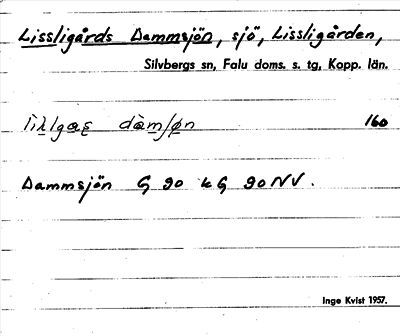 Lissligårds Dammsjön, sjö, Lissligården,
Silvbergs sn, Falu doms. s. tg, Kopp. län.
160
Dammsjön G 90 ek G 90 NV.
Inge Kvist 1957.